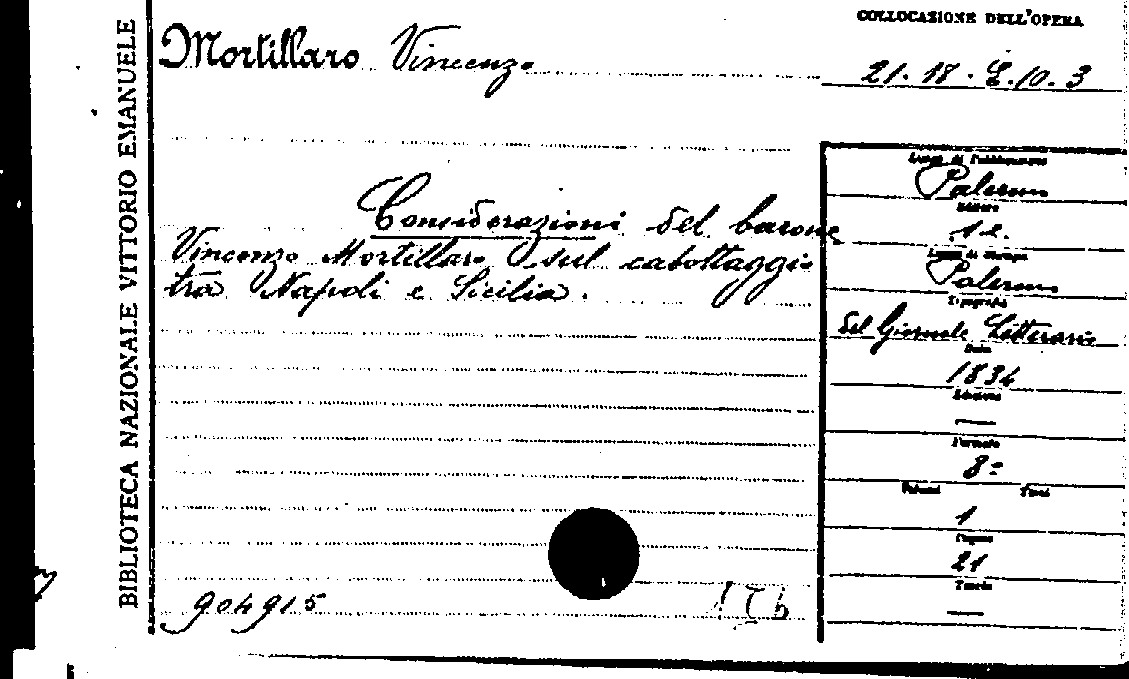 BIBLIOTECA NAZIONALE VITTORIO EMANUELE
COLLOCASIONE DELL'OPERA
Mortillaro Vincenzo
21.18.E.10.3
Considerazioni del barone
Vincenzo Mortillaro sul cabottaggio
tra Napoli e Sicilia.
Luogo di Pubblicazione
Palermo
Editore
Luogo di Stampa
Palermo
Tipografia
del Giornale Letterario
Data
1834
Edizione
—
Formato
8=
Volumi Tomi
1
Pagine
21
Tavole
—
904915